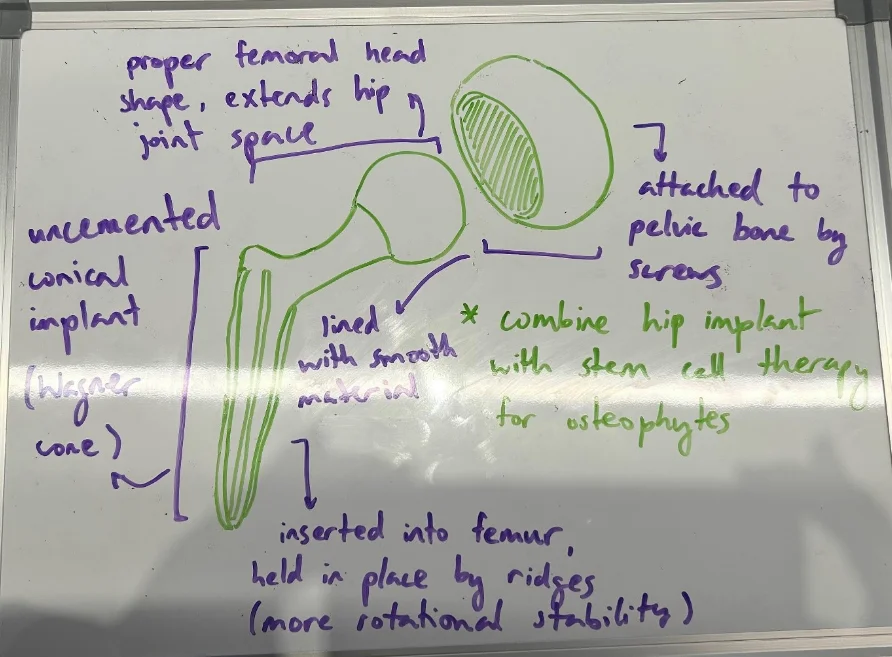 proper femoral head
shape, extends hip
joint space
attached to
pelvic bone by
screws
uncemented
conical
implant
(Wagner
cone)
lined
with smooth
material
* combine hip implant
with stem cell therapy
for osteophytes
inserted into femur,
held in place by ridges
(more rotational stability)